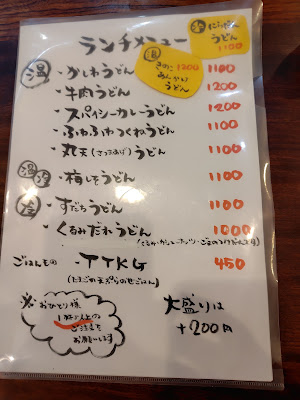 ランチメニュー
冷 にらぶた
うどん
1100
温 きのこ 1200
あんかけ
うどん
温
・かしわうどん 1100
・牛肉うどん 1200
・スパイシーカレーうどん 1200
・ふわふわつくねうどん 1100
・丸天(さつまあげ)うどん 1100
温 冷 ・梅しそうどん 1100
冷 ・すだちうどん 1100
・くるみだれうどん 1000
(くるみ・カシューナッツ・ごまのつけだれです)
ごはんもの TTKG 450
(たまごの天ぷらのせごはん)
※おひとり様
1杯以上の
ご注文を
お願いします
大盛りは
+200円